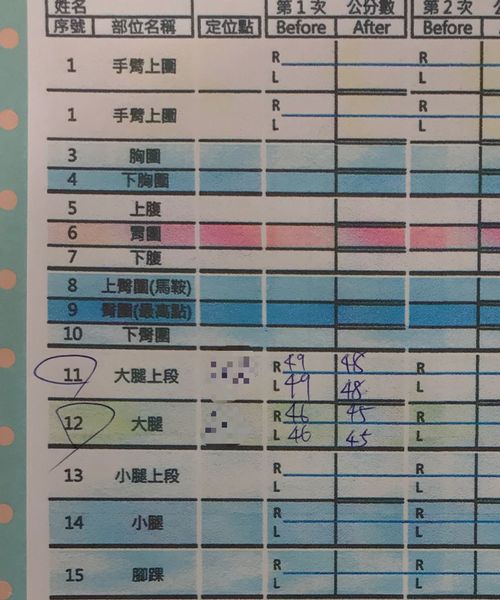 姓名 第1次 公分數 第2次
序號 部位名稱 定位點 Before After Before
1 手臂上圍 R R
L L
1 手臂上圍 R R
L L
3 胸圍
4 下胸圍
5 上腹
6 臀圍
7 下腹
8 上臀圍(馬鞍)
9 臀圍(最高點)
10 下臀圍
11 大腿上段 R 49 48 R
L 49 48 L
12 大腿 R 46 45 R
L 46 45 L
13 小腿上段 R R
L L
14 小腿 R R
L L
15 腳踝 R R
L L